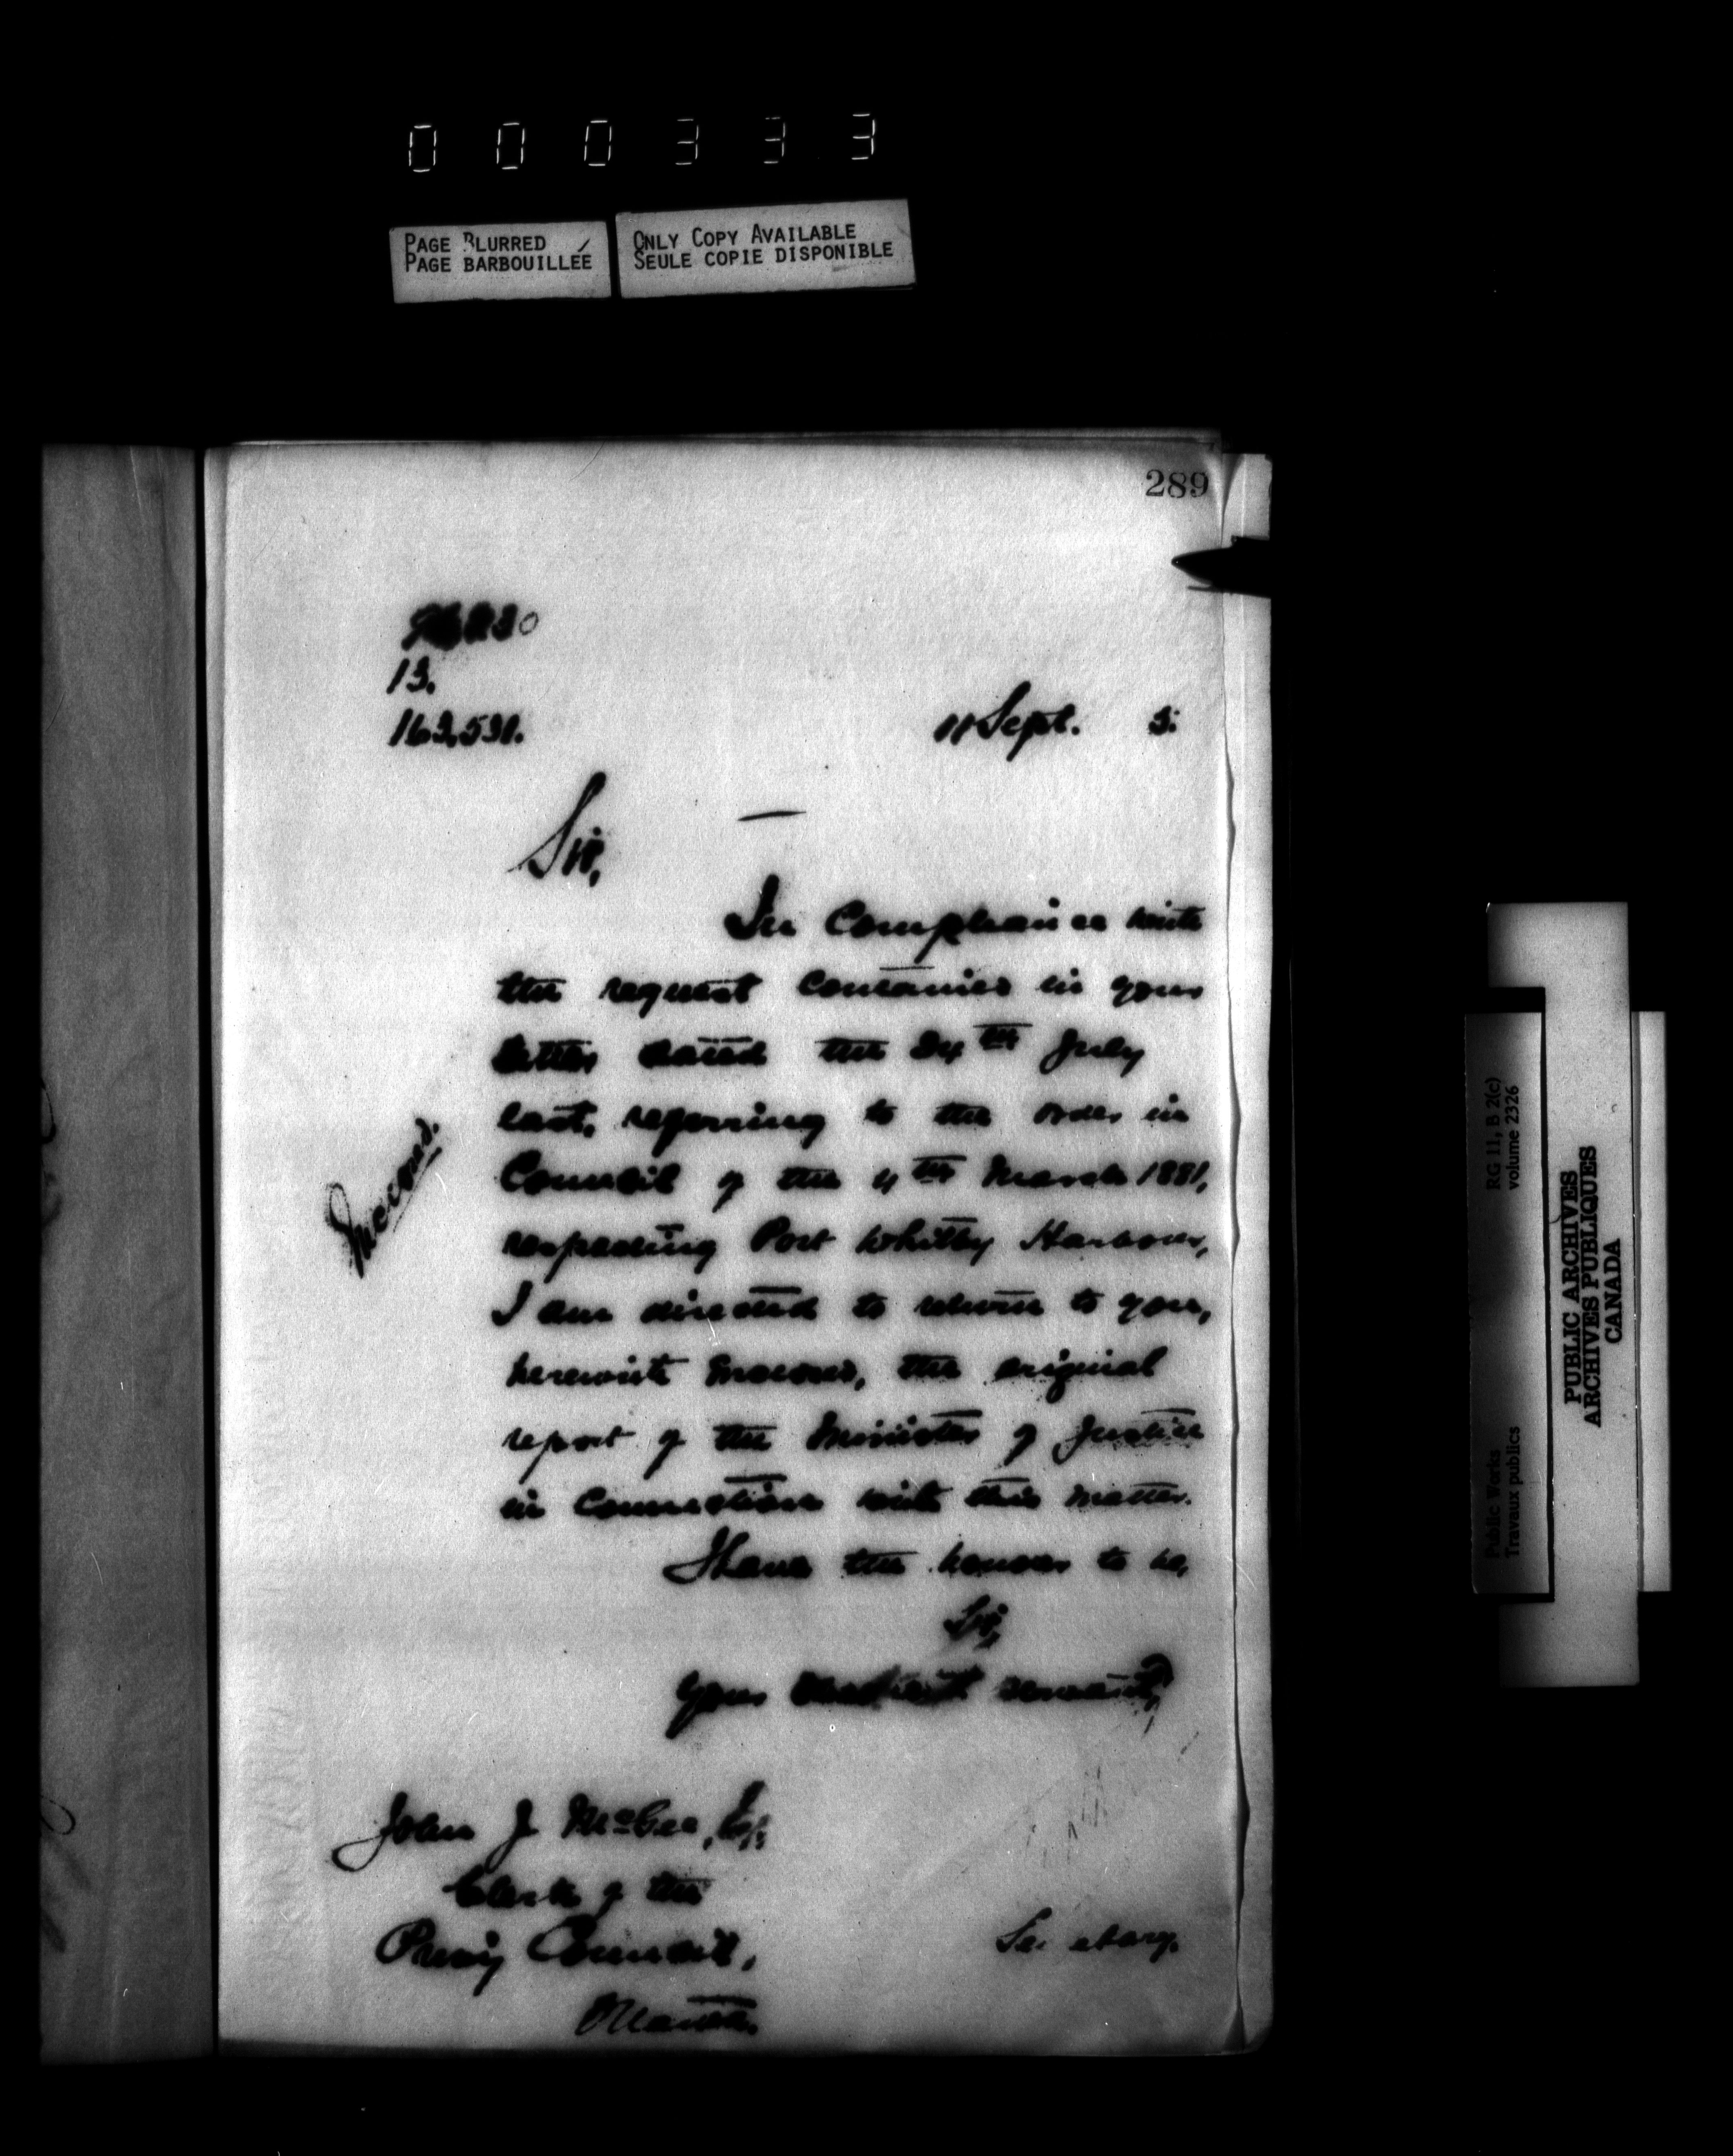 000333
PAGE BLURRED
PAGE BARBOUILLÉE
ONLY COPY AVAILABLE
SEULE COPIE DISPONIBLE
289
13.
11 Sept. 5.
Sir,
In Compliance with
the request contained in your
letter dated the 24th July
last, referring to the order in
Council of the 4th March 1881,
respecting Port Whitby Harbour,
I am directed to return to you,
herewith enclosed, the original
report of the Minister of Justice
in Connection with this matter.
I have the honour to be,
Sir,
Your obedient servant,
John J McGee, Esq.
Clerk of the
Privy Council,
Ottawa.
Secretary.
RG 11, B 2(c)
volume 2326
Public Works
Travaux publics
PUBLIC ARCHIVES
ARCHIVES PUBLIQUES
CANADA